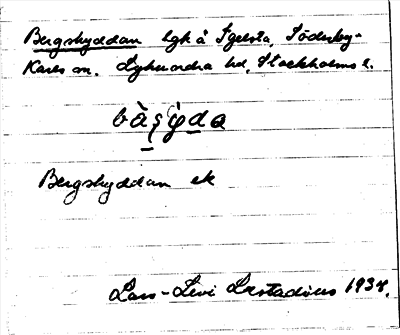 Bergskyddan lgh å Igelsta, Söderby-
Karls sn. Lyhundra hd, Stockholms l.
bàʂẏda
Bergskyddan ek
Lars-Levi Læstadius 1934.